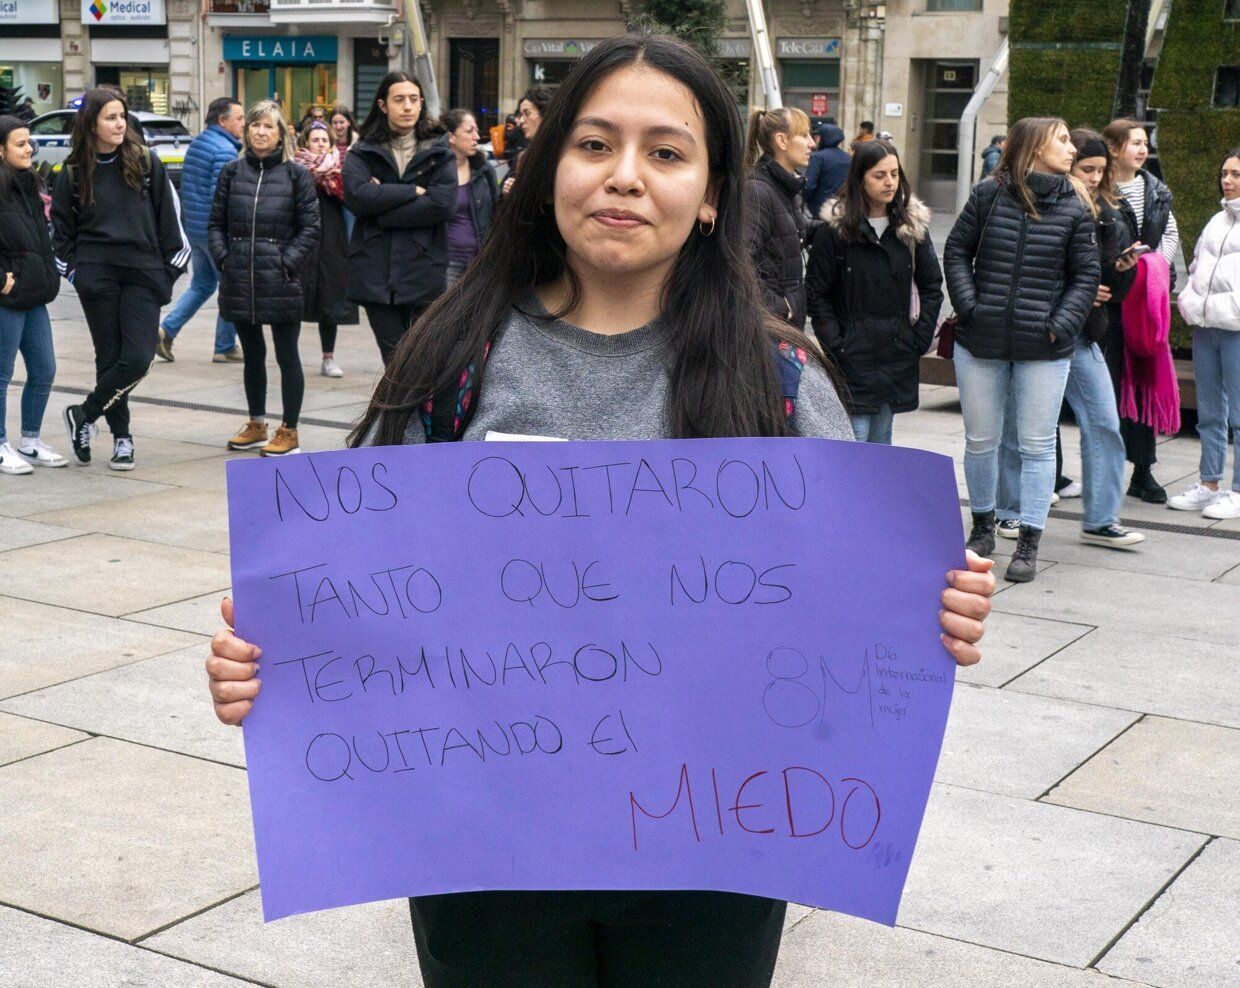 Medical
óptica audición
ELAIA
Caja Vital
k
TeleCaja
NOS QUITARON
TANTO QUE NOS
TERMINARON
QUITANDO El
MIEDO
8M
Día
internacional
de la
mujer